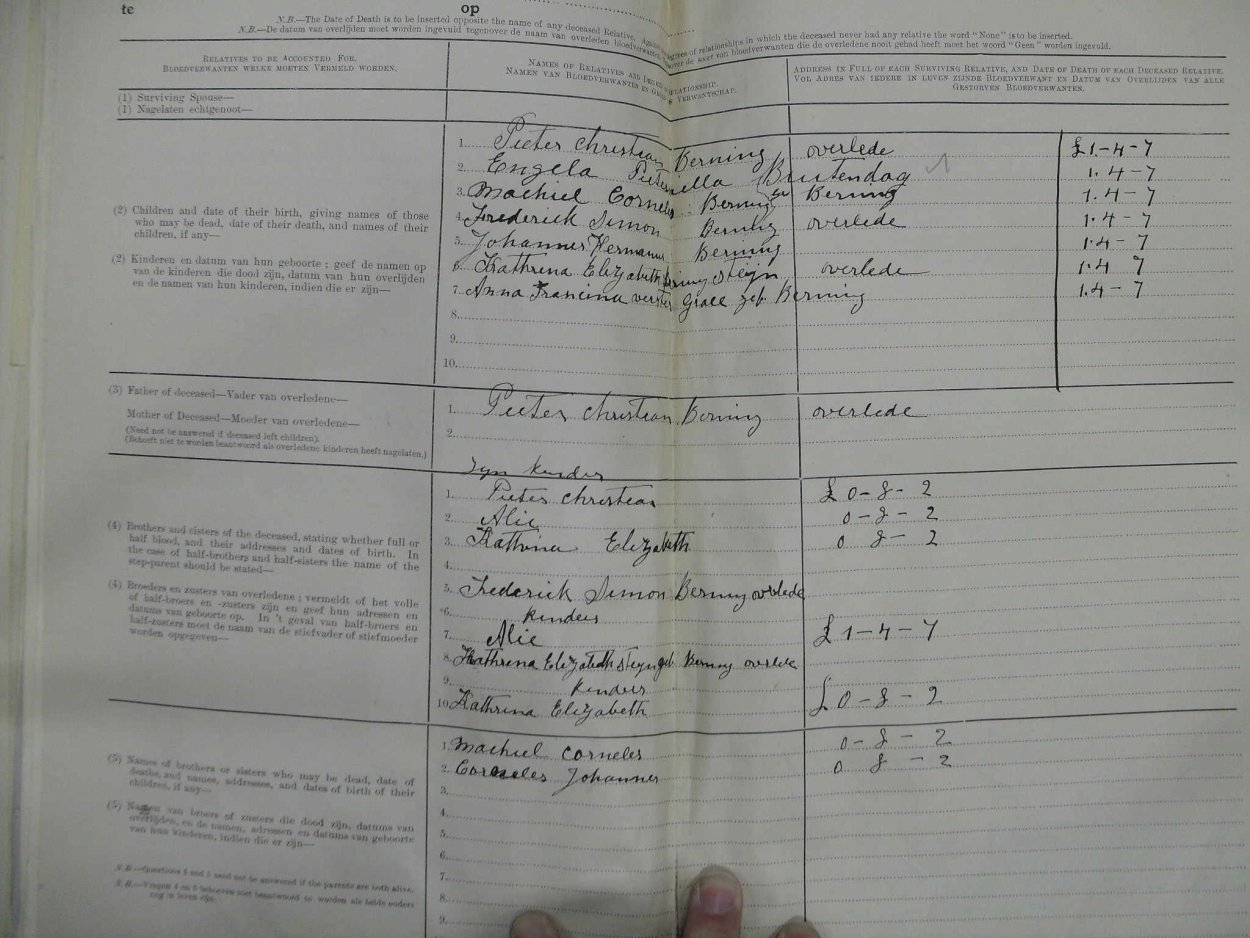 te op
N.B.—The Date of Death is to be inserted opposite the name of any deceased Relative. Against degrees of relationships in which the deceased never had any relative the word "None" is to be inserted.
N.B.—De datum van overlijden moet worden ingevuld tegenover de naam van overleden bloedverwanten, tegenover de soort van bloedverwanten die de overledene nooit gehad heeft moet het woord "Geen" worden ingevuld.
RELATIVES TO BE ACCOUNTED FOR.
BLOEDVERWANTEN WELKE MOETEN VERMELD WORDEN.
NAMES OF RELATIVES AND RELATIONSHIP.
NAMEN VAN BLOEDVERWANTEN EN VERWANTSCHAP.
ADDRESS IN FULL OF EACH SURVIVING RELATIVE, AND DATE OF DEATH OF EACH DECEASED RELATIVE.
VOL ADRES VAN IEDERE IN LEVEN ZIJNDE BLOEDVERWANT EN DATUM VAN OVERLIJDEN VAN ALLE
GESTORVEN BLOEDVERWANTEN.
(1) Surviving Spouse—
(1) Nagelaten echtgenoot—
(2) Children and date of their birth, giving names of those
who may be dead, date of their death, and names of their
children, if any—
(2) Kinderen en datum van hun geboorte ; geef de namen op
van de kinderen die dood zijn, datum van hun overlijden
en de namen van hun kinderen, indien die er zijn—
1. Pieter Christian Berning overlede £1-4-7
2. Engela Buitendag 1.4-7
3. Machiel Corneles Berning Berning 1.4-7
4. Frederick Simon Berning overlede 1.4-7
5. Johannes Hermanus Berning 1.4-7
6. Kathrina Elizabeth Steijn overlede 1.4 7
7. Anna Francina geb. Berning 1.4-7
8.
9.
10.
(3) Father of deceased—Vader van overledene—
Mother of Deceased—Moeder van overledene—
(Need not be answered if deceased left children).
(Behoeft niet te worden beantwoord als overledene kinderen heeft nagelaten.)
1. Pieter Christian Berning overlede
2.
(4) Brothers and sisters of the deceased, stating whether full or
half blood, and their addresses and dates of birth. In
the case of half-brothers and half-sisters the name of the
step-parent should be stated—
(4) Broeders en zusters van overledene ; vermeldt of het volle
of half-broers en -zusters zijn en geef hun adressen en
datums van geboorte op. In 't geval van half-broers en
half-zusters moet de naam van de stiefvader of stiefmoeder
worden opgegeven—
Zyn kinders
1. Pieter Christian £0-8-2
2. Alie 0-8-2
3. Kathrina Elizabeth 0 8-2
4.
5. Frederick Simon Berning overlede
6. kinders
7. Alie £1-4-7
8. Kathrina Elizabeth Steyn geb Berning overlede
9. kinders
10. Kathrina Elizabeth £0-8-2
(5) Names of brothers or sisters who may be dead, date of
deaths, and names, addresses, and dates of birth of their
children, if any—
(5) Namen van broers of zusters die dood zijn, datums van
overlijden, en de namen, adressen en datums van geboorte
van hun kinderen, indien die er zijn—
N.B.—Questions 4 and 5 need not be answered if the parents are both alive.
N.B.—Vragen 4 en 5 behoeven niet beantwoord te worden als beide ouders
nog in leven zijn.
1. Machiel Corneles 0-8-2
2. Corneles Johannes 0 8-2
3.
4.
5.
6.
7.
8.
9.